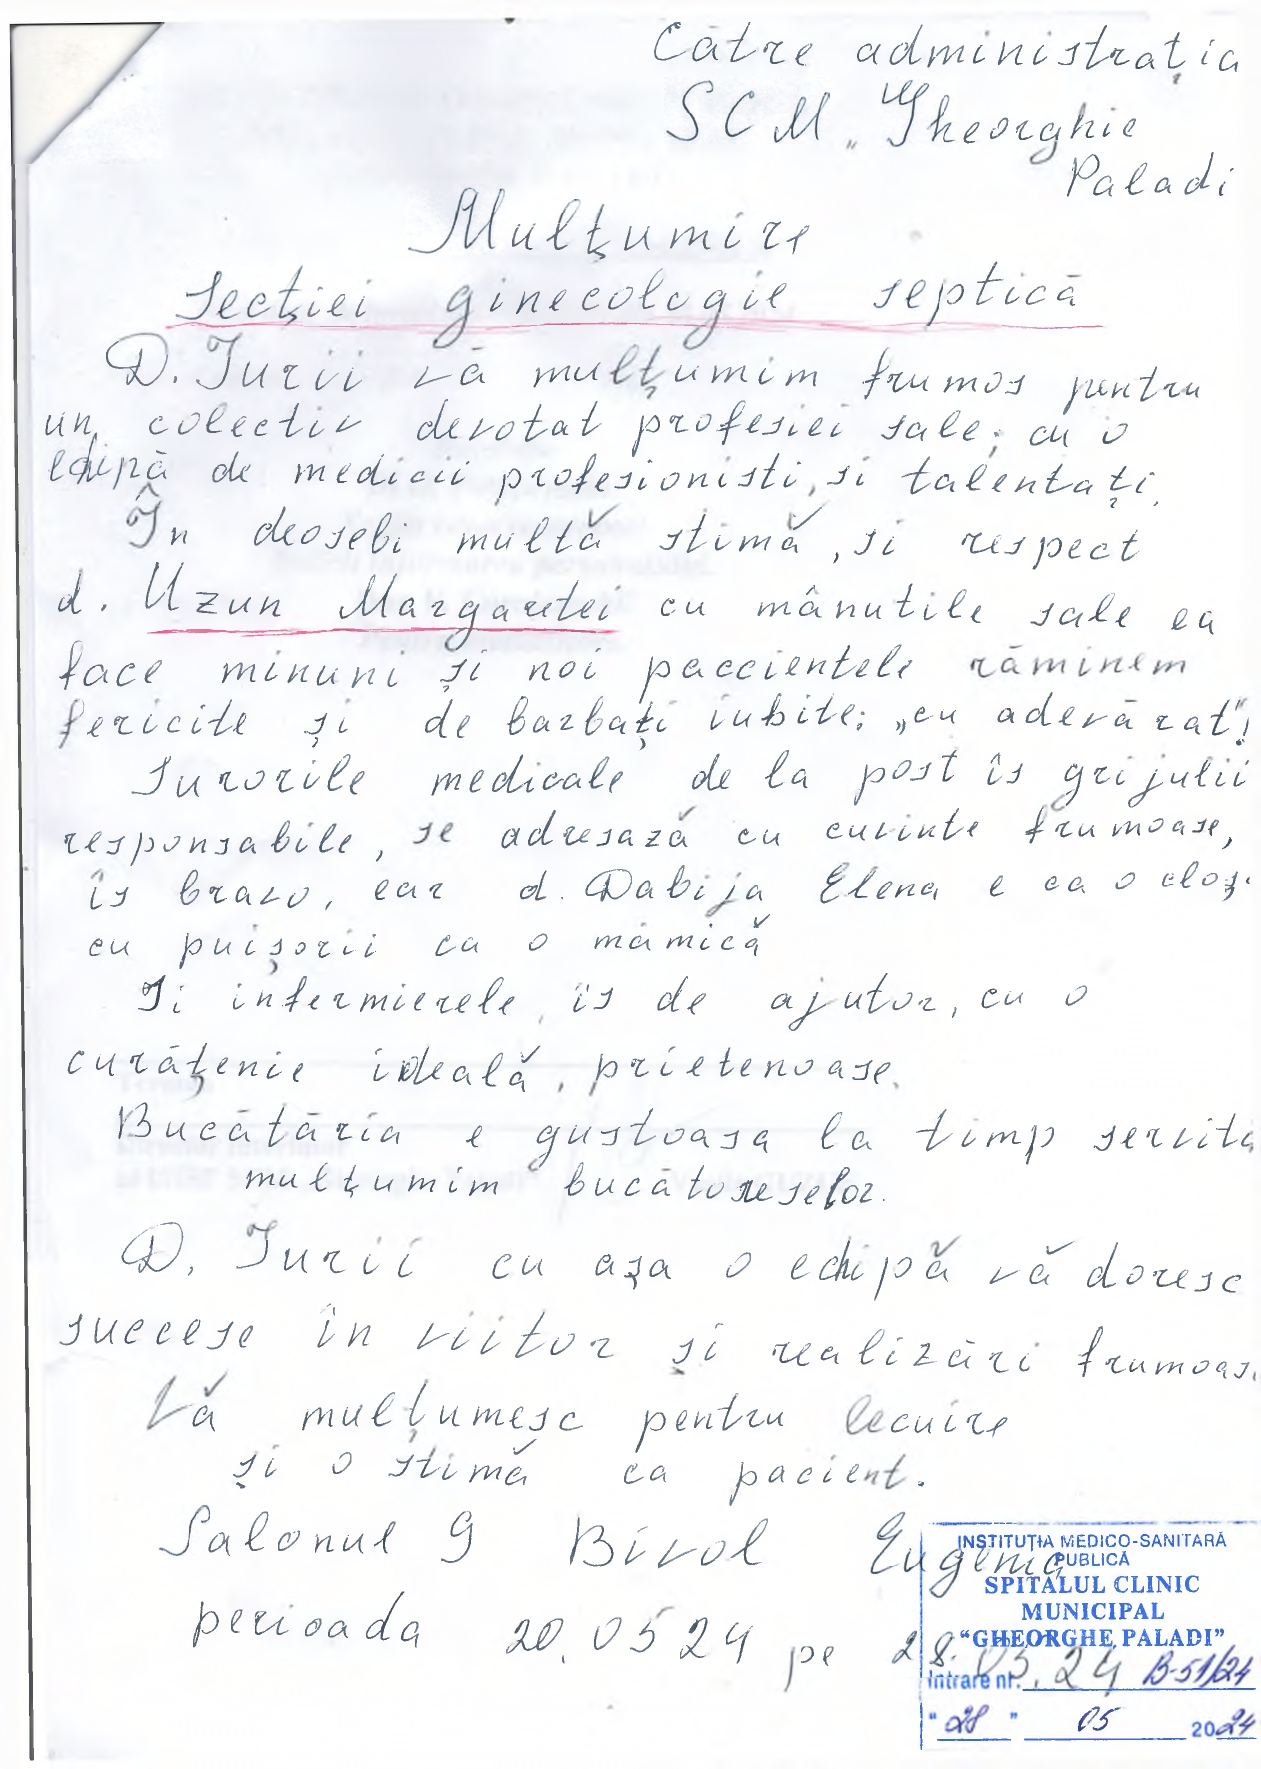 Către administrația
SCM „Gheorghie
Paladi
Mulțumire
Secției ginecologie septică
D. Iurii vă mulțumim frumos pentru
un colectiv devotat profesiei sale, cu o
echipă de medicii profesionisti, si talentați.
În deosebi multă stimă, si respect
d. Uzun Margaretei cu mânutile sale ea
face minuni și noi paccientele răminem
fericite și de barbați iubite; „cu adevărat"!
Surorile medicale de la post îs grijulii
responsabile, se adresază cu cuvinte frumoase,
îs bravo, ear d. Dabija Elena e ca o cloș.
cu puișorii ca o mămică
Si infermierele, îs de ajutor, cu o
curățenie ideală, prietenoase.
Bucătăria e gustoasa la timp servită
mulțumim bucătoreselor.
D. Iurii cu așa o echipă vă doresc
succese în viitor și realizări frumoas.
Vă mulțumesc pentru lecuire
și o stimă ca pacient.
Salonul 9 Birol Eugenia
perioada 20.05 24 pe 28.05.24
INSTITUȚIA MEDICO-SANITARĂ
PUBLICĂ
SPITALUL CLINIC
MUNICIPAL
“GHEORGHE PALADI”
Intrare nr. B-51/24
“28” 05 2024